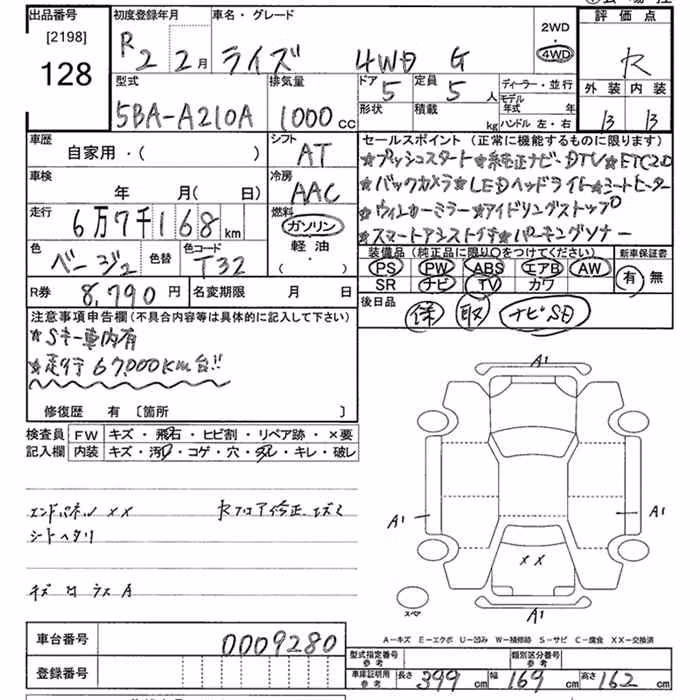 出品番号
[2198]
128
初度登録年月
R2 2月
車名・グレード
ライズ 4WD G
2WD
・
4WD
評価点
R
外装 内装
B B
型式
5BA-A210A
排気量
1000cc
ドア 5
定員 5人
形状
積載 kg
ディーラー・並行
モデル年式 年
ハンドル 左・右
車歴
自家用・( )
シフト
AT
車検
年 月(日)
冷房
AAC
走行
6万7千168km
燃料
ガソリン
軽油
( ・ )
色
ベージュ
色替
色コード
T32
R券 8,790円
名変期限 月 日
セールスポイント (正常に機能するものに限ります)
☆プッシュスタート☆純正ナビ・DTV☆ETC2.0
☆バックカメラ☆LEDヘッドライト☆シートヒーター
☆ウィンカーミラー☆アイドリングストップ
☆スマートアシスト付☆パーキングソナー
装備品(純正品に限り○をつけてください)
PS PW ABS エアB AW
SR ナビ TV カワ
新車保証書
有 無
後日品
保 取 ナビSD
注意事項申告欄(不具合内容等は具体的に記入して下さい)
☆Sキー車内有
☆走行67,000Km台!!
修復歴 有 〔箇所 〕
検査員
記入欄
FW キズ・飛石・ヒビ割・リペア跡・×要
内装 キズ・汚れ・コゲ・穴・タレ・キレ・破レ
エンドパネル ××
シートヘタリ
キズ
A1
A1
A1
××
A1
スペア
A−キズ E−エクボ U−凹み W−補修跡 S−サビ C−腐食 XX−交換済
車台番号
0009280
登録番号
型式指定番号
参考
類別区分番号
参考
車庫証明用
参考
長さ 399cm
幅 169cm
高さ 162cm